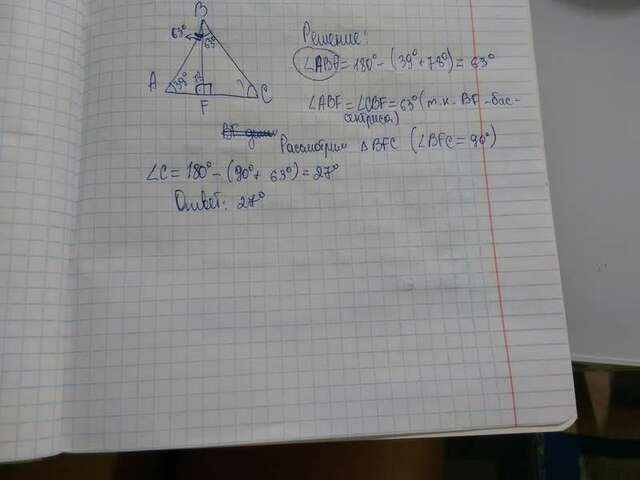 B
63°
63°
Решение:
∠ABF = 180° - (39° + 78°) = 63°
A
39°
F
C
∠ABF = ∠CBF = 63° (т.к. BF - бис-
сектриса)
Рассмотрим △BFC (∠BFC = 90°)
∠C = 180° - (90° + 63°) = 27°
Ответ: 27°